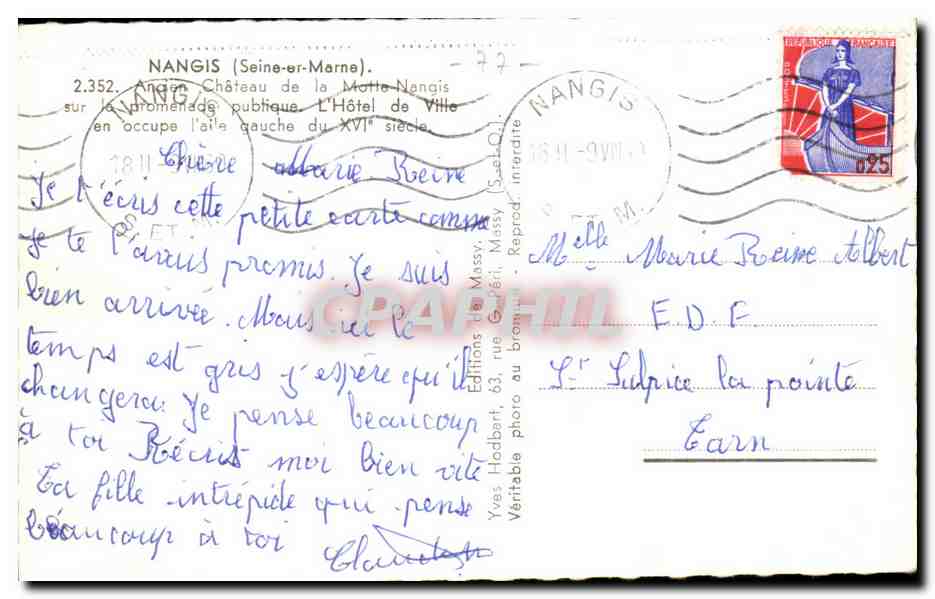 - 77 -
NANGIS (Seine-et-Marne).
2.352. Ancien Château de la Motte-Nangis
sur la promenade publique. L'Hôtel de Ville
en occupe l'aile gauche du XVIᵉ siècle.
NANGIS
18 H
S. ET M.
NANGIS
18 H - 9 VIII
ET M.
REPUBLIQUE FRANÇAISE
0,25
Chère Marie Reine
Je t'écris cette petite carte comme
je te l'avais promis. Je suis
bien arrivée. Mais ici le
temps est gris j'espère qu'il
changera. Je pense beaucoup
à toi Récris moi bien vite
Ta fille intrépide qui pense
beaucoup à toi
Editions de Massy.
Yves Hodbert, 63, rue G.-Péri, Massy (S.-et-O.).
Véritable photo au bromure - Reprod. interdite
Melle Marie Reine Albert
E.D.F.
St Sulpice la pointe
Tarn
CPAPHIL